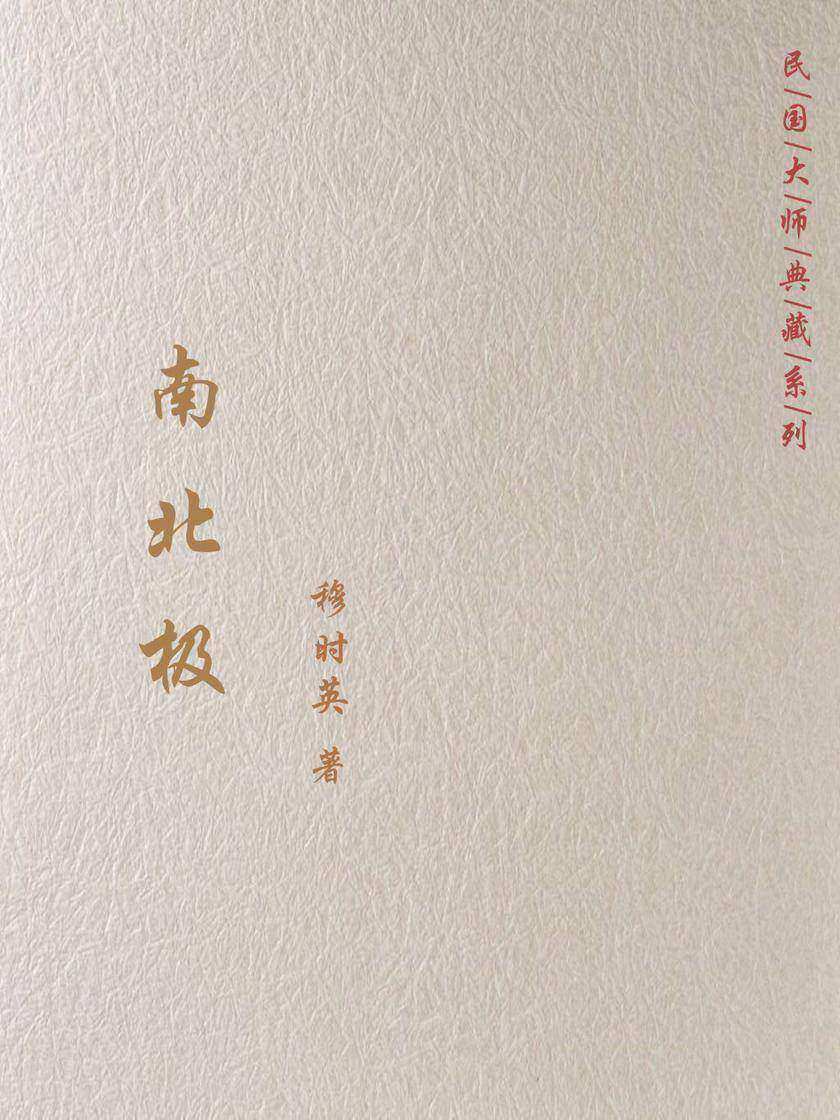 民/国/大/师/典/藏/系/列
南北极
穆时英 著